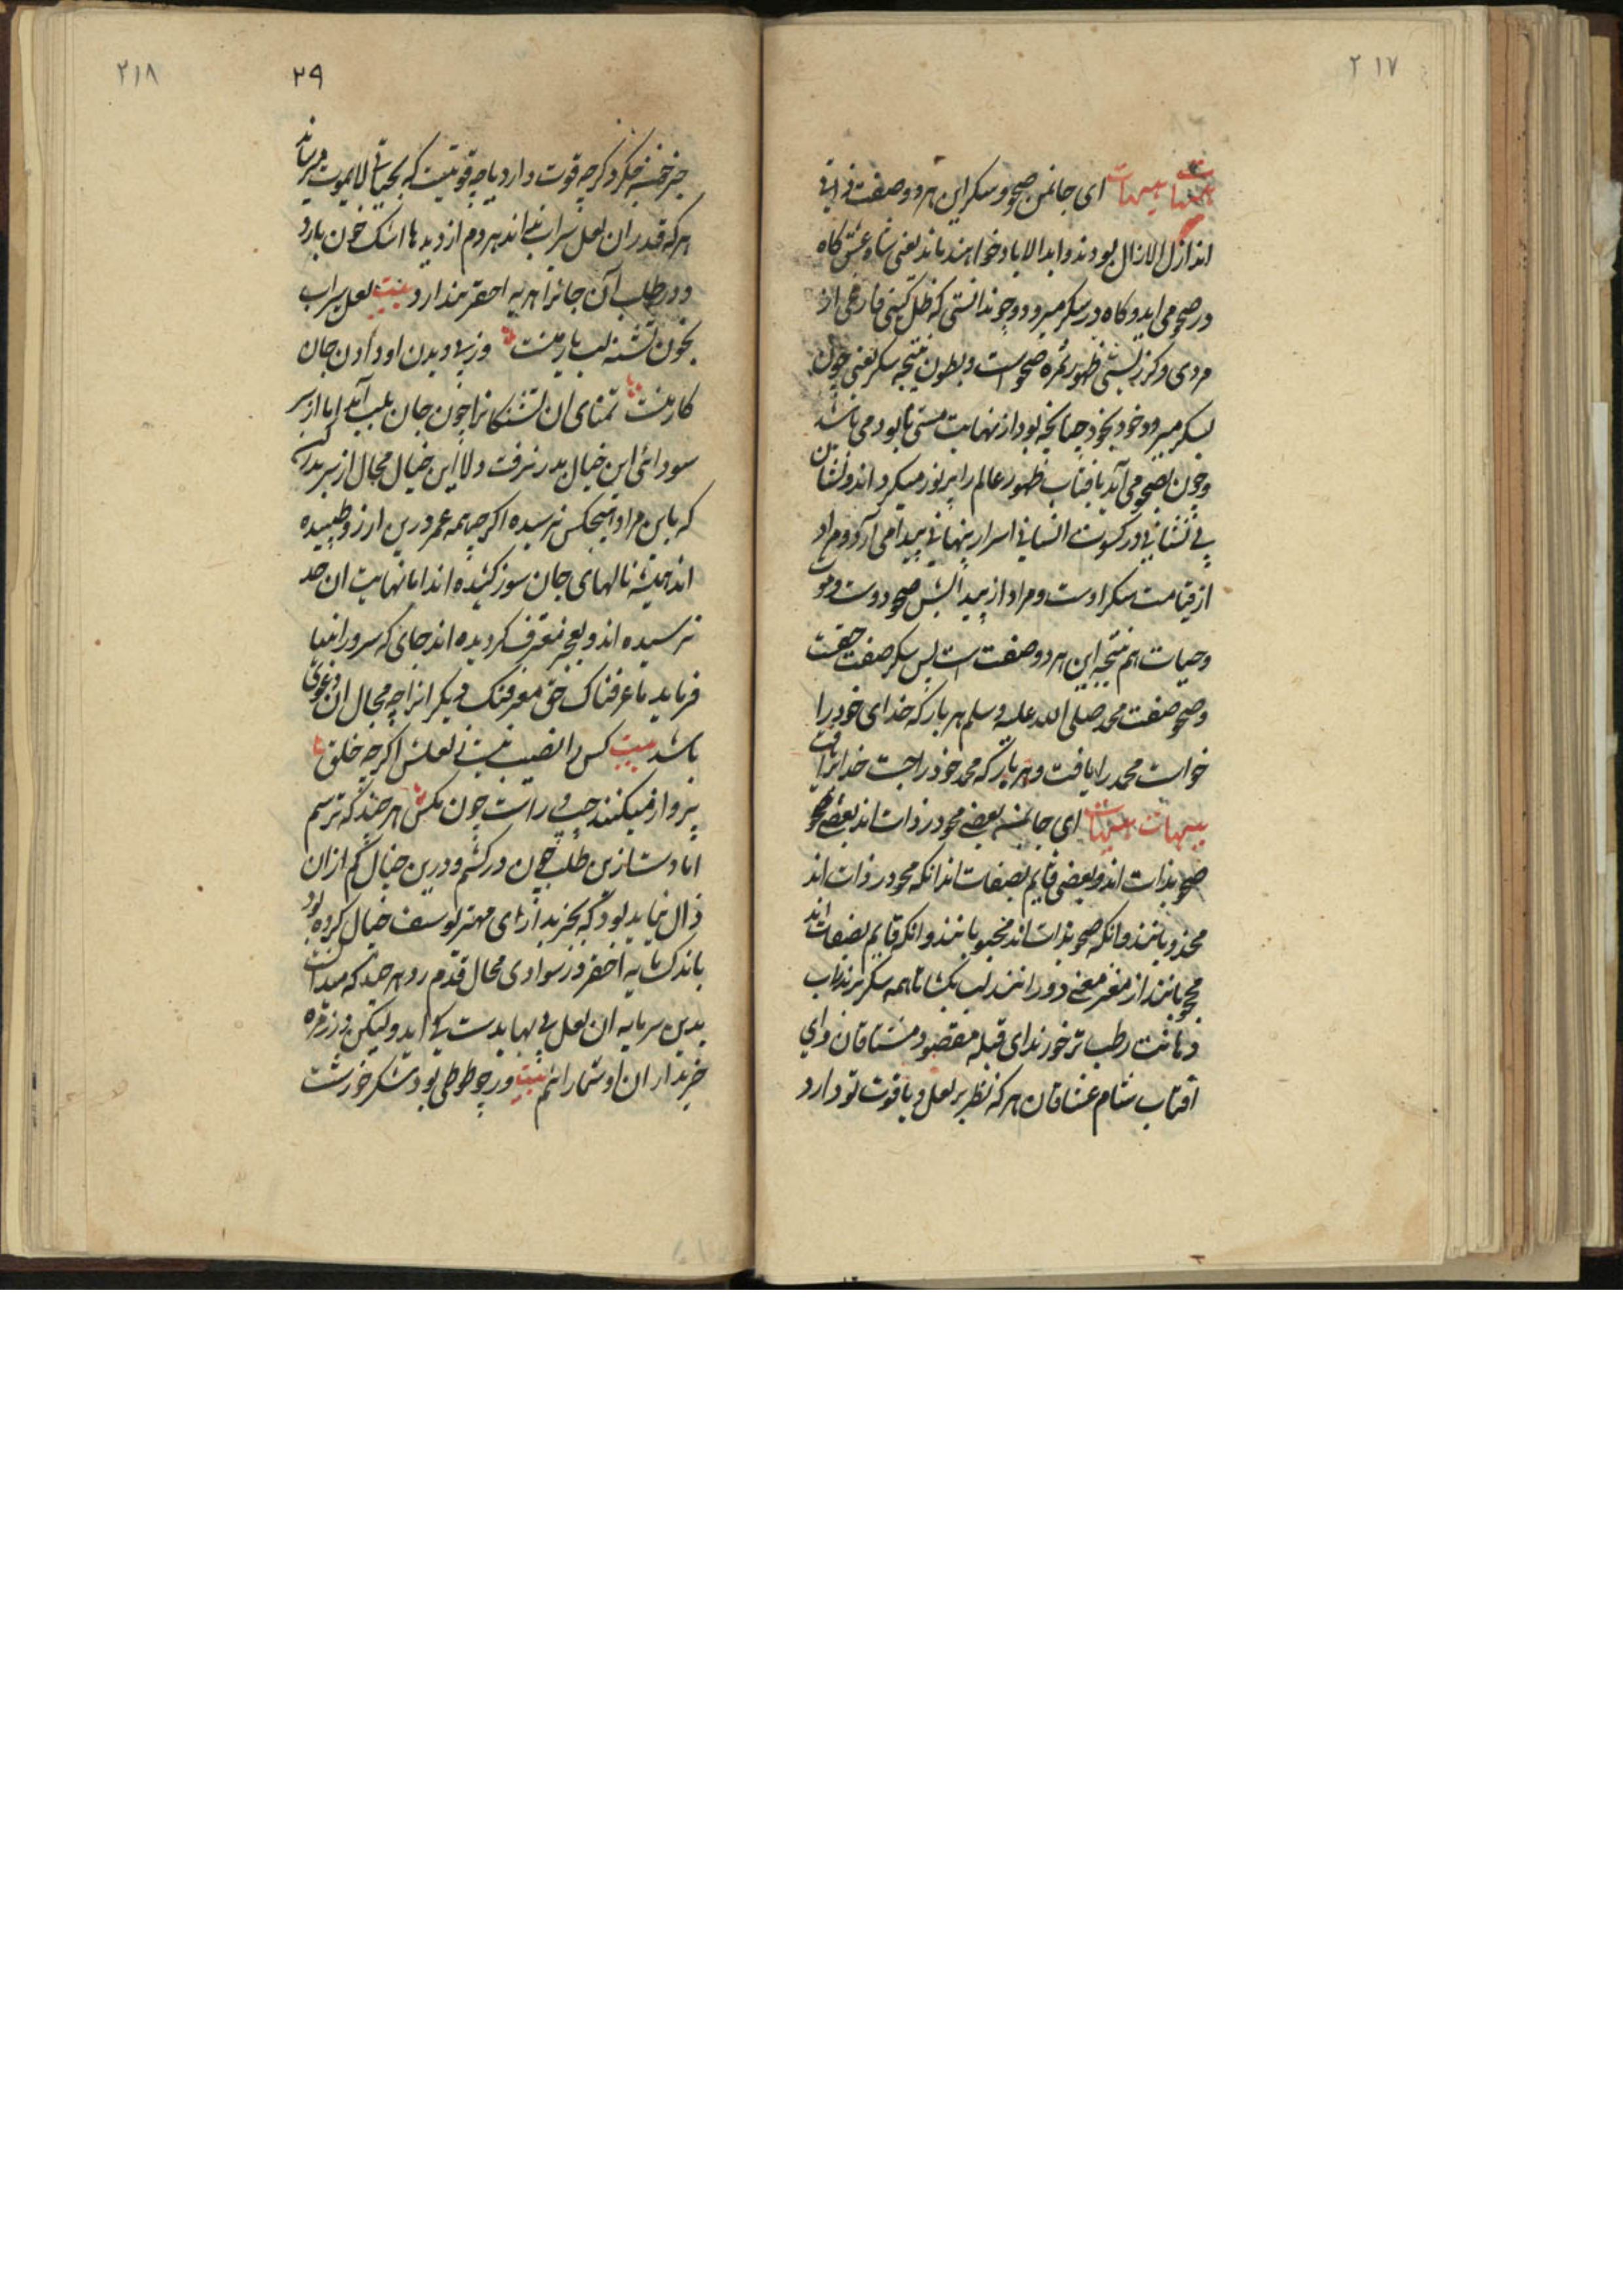 ۲۱۷
هیهات هیهات ای جانمن صحو و سکر این هر دو صفت ذاتی
اند ازل الازال بودند و ابد الاباد خواهند ماند یعنی شاه عشق کاه
در صحو می اید و کاه در سکر میرود و چو ندانستی که ظل کیستی فارغی از
مردی و کر زیستی ظهور ثمره صحو است و بطون نتیجه سکر یعنی چون
بسکر میرود خود بخود چنانچه بود از نهایت مستی نابود می باشد
و چون بصحو می آید بافتاب ظهور عالم را پر نور میکرداند و نشان
بی نشانی در کسوت انسانی اسرار پنهانی پیدا می آرد و مراد
از قیامت سکر اوست و مراد از پیدایش صحو دوست و موت
و حیات هم نتیجه این هر دو صفت است پس سکر صفت حقست
و صحو صفت محمد صلی الله علیه وسلم هر بار که خدای خود را
خواست محمد را یافت و هر بار که محمد خود را جست خدا را یافت
هیهات هیهات ای جانمن بعضی محو در ذات اند بعضی محو
صحو بذات اند و بعضی قایم بصفات اند انکه محو در ذات اند
مجذوبانند و انکه صحو بذات اند محبوبانند و انکه قایم بصفات اند
محجوبانند از مغز معنی دورانند لب بکشا تا همه سکر برند اب
دهانت رطب تر خورند ای قبله مقصود مشتاقان و ای
افتاب شام عشاقان هر که نظر بر لعل و یاقوت تو دارد
۲۱۸
۲۹
جز خمسه فکر و ذکر چه قوت دارد یا چه قوتیست که بحیات لایموت میرساند
هر که قدر ان لعل سراب بداند هر دم از دیدها اشک خون بارد
و در طلب آن جانرا هدیه احقر پندارد بیت لعل سیراب
بخون تشنه لب یار منست وز پی دیدن او دادن جان
کار منست تمنای ان تشنکانرا چون جان بلب آمد اما از سر
سودائی این خیال بدر نرفت ولا این خیال محال از سر بدر کن
که باین مراد هیچکس نرسیده اکرچه همه عمر درین ارزو طپیده
اند همیشه نالهای جان سوز کشیده اند اما نهایت ان حد
نرسیده اند و بعجز معترف کردیده اند جای که سرور انبیا
فرماید ما عرفناک حق معرفتک دیکرانرا چه مجال ان دعوی
باشد بیت کس را نصیب نیست ز لعلش اکرچه خلق
پرواز میکنند چپ و راست چون مکس هر چند که ترسم
اما دست ازین طلب چون در کشم و درین خیال کم از ان
زال نباید بود که بخریداری مهتر یوسف خیال کرده بود
باندک مایه احقر در سوادی محال قدم زد هر چند که میدانست
بدین سرمایه ان لعل بی بها بدست کی اید ولیکن در زمره
خریداران او شمار انم بیت ورچو طوطی بود شکر خورشت